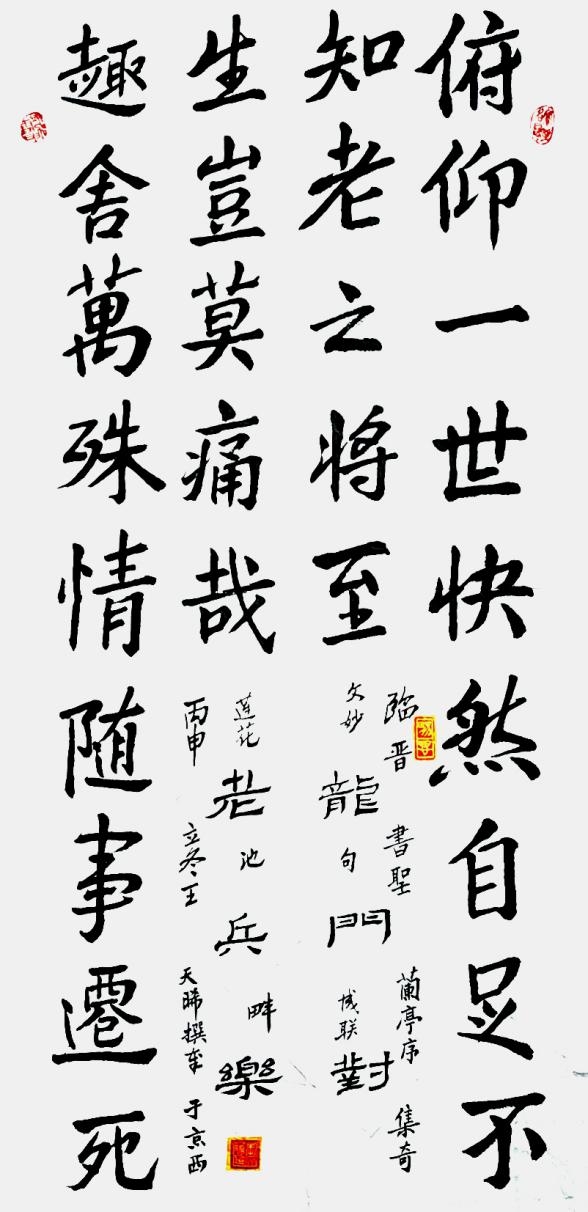 俯仰一世快然自足不
知老之將至
趣舍萬殊情随事遷死
生豈莫痛哉
臨晋書聖蘭亭序集奇
文妙句成联
龍門對
莲花池畔
老兵樂
丙申立冬王天晞撰于京西